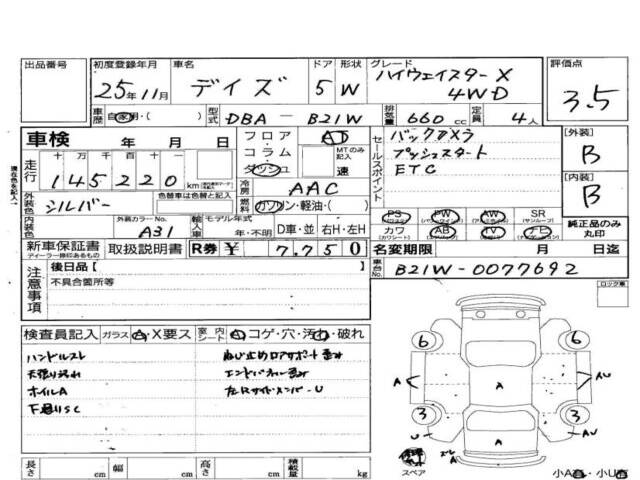 出品番号 初度登録年月 車名 ドア 形状 グレード 評価点
25年11月 デイズ 5 W ハイウェイスターX 4WD 3.5
車歴 自家用・( ) 型式 DBA－B21W 排気量 660 cc 定員 4人
車検 年 月 日 フロア・コラム・ダッシュ AT MTのみ記入 速
セールスポイント バックカメラ
プッシュスタート
ETC
[外装] B
[内装] B
走行 十 万 千 百 十 一
145220 km
冷房 AAC
外装色 シルバー 色替車は色替と記入
燃料 ガソリン・軽油・( )
内装色 外装カラーNo. A31 輸入車 モデル年式 年・不明 D車・並 右H・左H
PS PW AW SR (サンルーフ)
カワ (カワシート) AB TV ナビ
純正品のみ丸印
新車保証書 ディーラー捺印あるもの 取扱説明書 R券 ¥ 7,750
名変期限 月 日迄
注意事項 後日品【 】
不具合箇所等
車台No. B21W-0077692
ロック車
検査員記入 ガラス A・X要ス 室内シート A コゲ・穴・汚れ・破れ
ハンドルスレ
天張り汚れ
ホイルA
下廻りSC
ねじ止めロアサポート歪み
エンドパネル歪み
左Rサイドメンバ-U
6 6
A A A AU
3 3
U A AU
スペア
小A・小U
長さ cm 幅 cm 高さ cm 積載量 kg